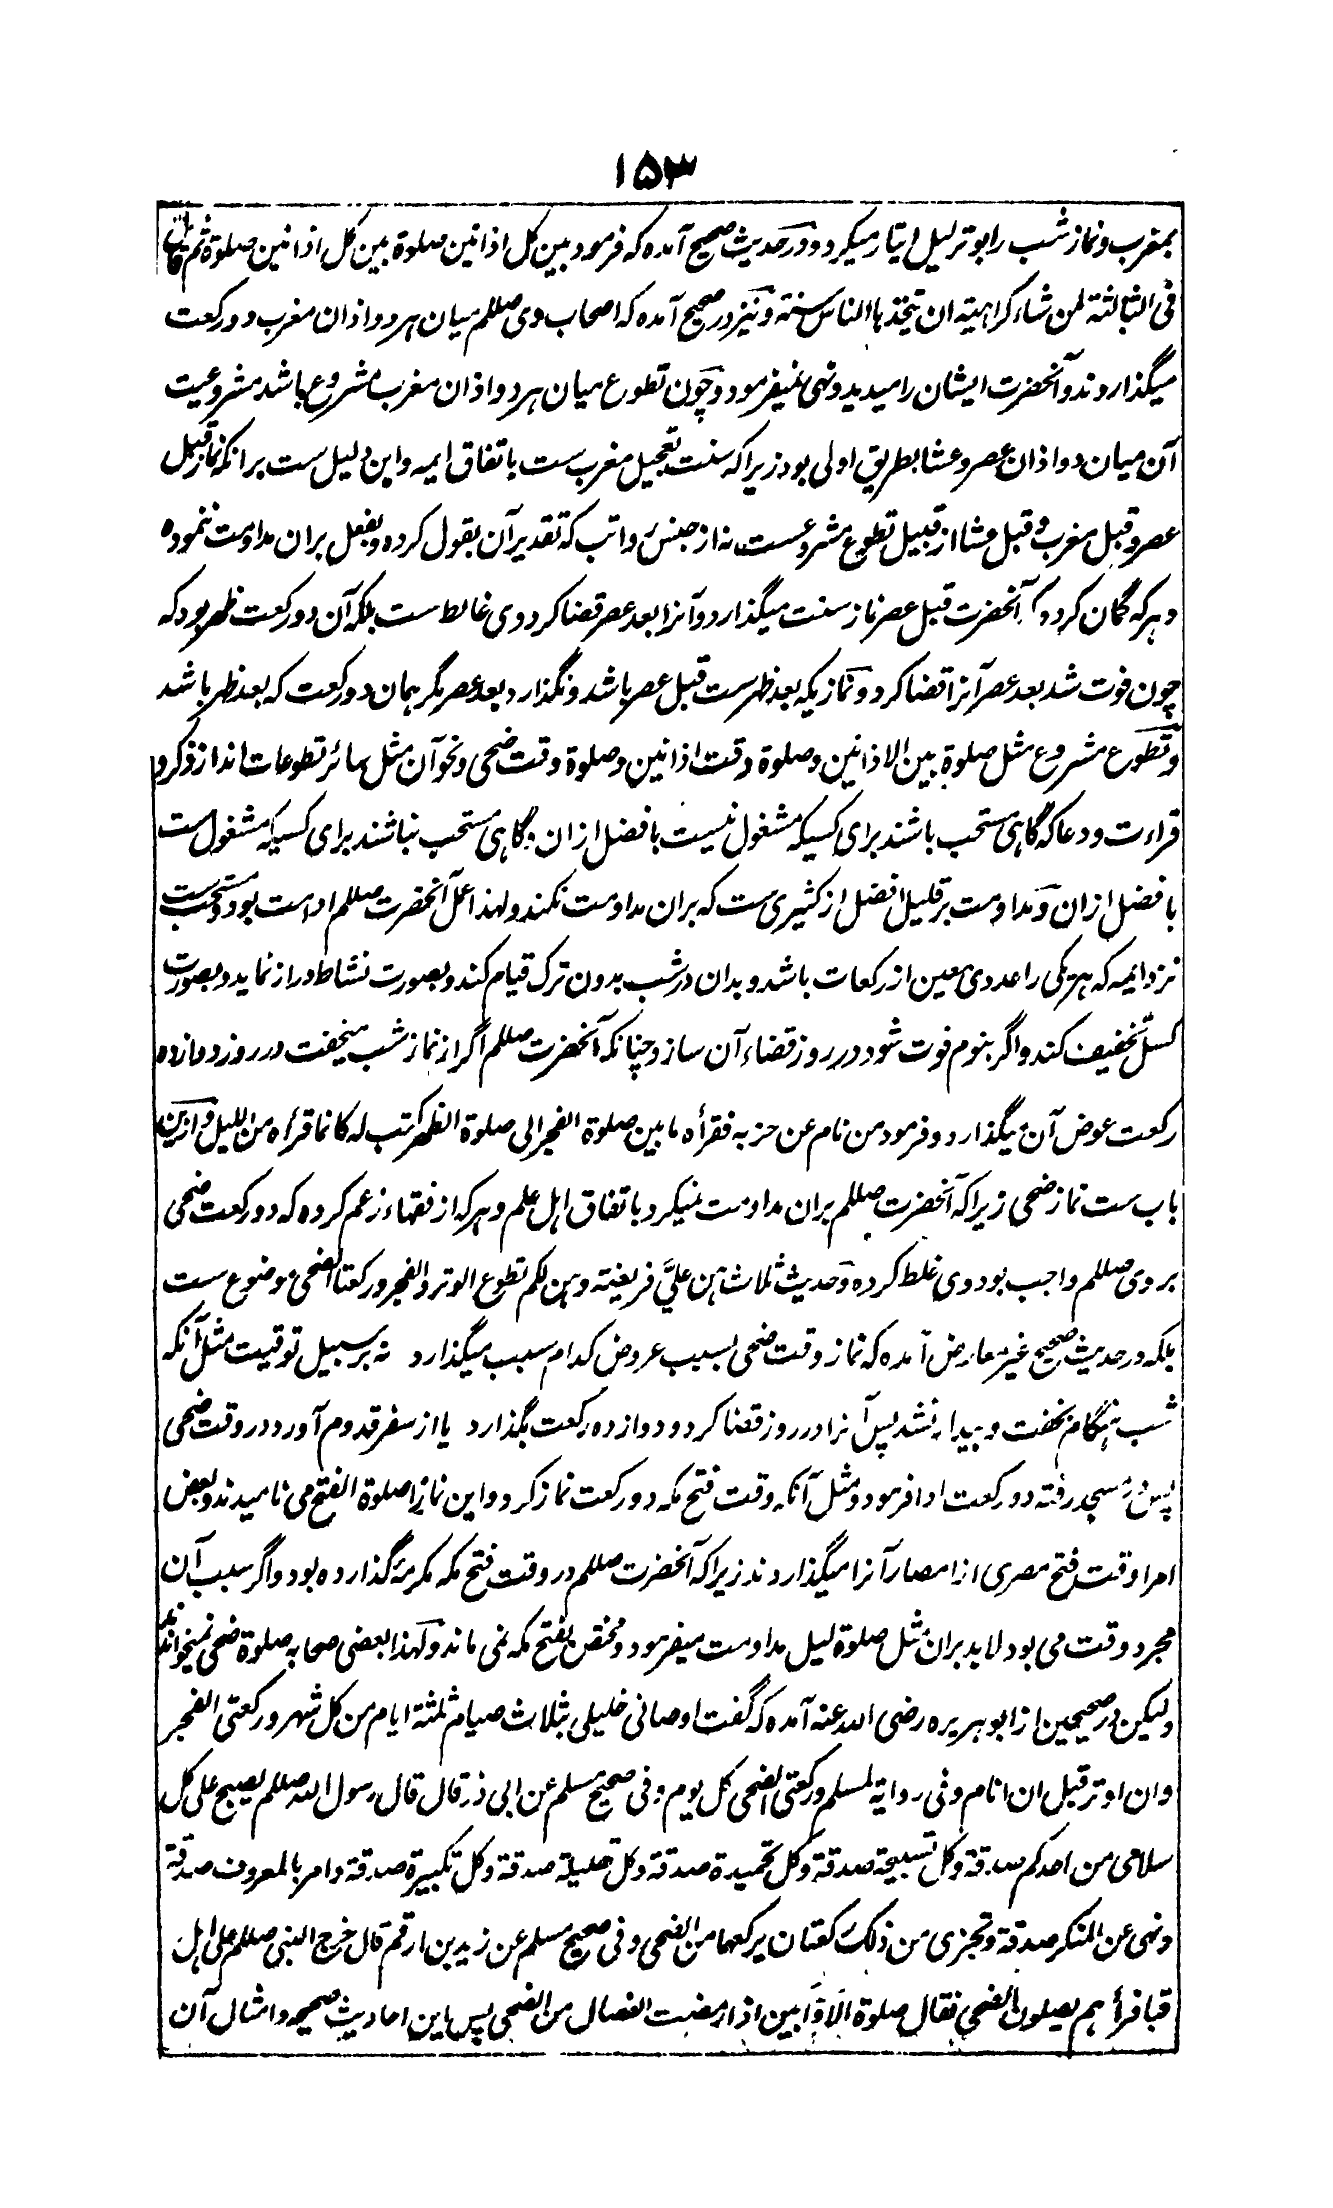 ۱۵۳
بمغرب و نماز شب را بوتر لیل ایتار میکرد و در حدیث صحیح آمده که فرمود بین کل اذانین صلوة بین کل اذانین صلوة ثم قال
فی الثالثة لمن شاء کراهیة ان تیخذها الناس سنة و نیز در صحیح آمده که اصحاب وی صللم میان هر دو اذان مغرب دو رکعت
میگذاردند و آنحضرت ایشان را میدید و نهی نمیفرمود و چون تطوع میان هر دو اذان مغرب مشروع باشد مشروعیت
آن میان دو اذان عصر و عشا بطریق اولی بود زیرا که سنت تعجیل مغرب ست باتفاق ایمه و این دلیل ست برانکه نماز قبل
عصر و قبل مغرب و قبل عشا از قبیل تطوع مشروعست نه از جنس رواتب که تقدیر آن بقول کرده و بفعل بران مداومت ننموده
و هر که گمان کرد که آنحضرت قبل عصر نماز سنت میگذارد و آنرا بعد عصر قضا کرد وی غالط ست بلکه آن دو رکعت ظهر بود که
چون فوت شد بعد عصر آنرا قضا کرد و نمازیکه بعد ظهرست قبل عصر باشد و نگذارد بعد عصر مگر همان دو رکعت که بعد ظهر باشد
و تطوع مشروع مثل صلوة بین الاذانین و صلوة وقت اذانین و صلوة وقت ضحی و نحو آن مثل سائر تطوعات اند از ذکر و
قراءت و دعا که گاهی مستحب باشند برای کسیکه مشغول نیست بافضل ازان و گاهی مستحب نباشند برای کسیکه مشغول ست
بافضل ازان و مداومت بر قلیل افضل از کثیری ست که بران مداومت نکنند و لهذا عمل آنحضرت صللم ادامت بود و مستحب ست
نزد ایمه که هر یکی را عددی معین از رکعات باشد و بدان در شب بدون ترک قیام کند و بصورت نشاط دراز نماید و بصورت
کسل تخفیف کند و اگر بنوم فوت شود در روز قضاء آن سازد چنانکه آنحضرت صللم اگر از نماز شب میخفت در روز دوازده
رکعت عوض آن میگذارد و فرمود من نام عن حزبه فقرأه ما بین صلوة الفجر الی صلوة الظهر کتب له کانما قرأه من اللیل و ازین
باب ست نماز ضحی زیرا که آنحضرت صللم بران مداومت نمیکرد باتفاق اهل علم و هر که از فقهاء زعم کرده که دو رکعت ضحی
بر وی صللم واجب بود وی غلط کرده و حدیث ثلاث هن علیّ فریضة و هن لکم تطوع الوتر و الفجر و رکعتا الضحی موضوع ست
بلکه در حدیث صحیح غیر معارض آمده که نماز وقت ضحی بسبب عروض کدام سبب میگذارد نه بر سبیل توقیت مثل آنکه
شب هنگام بخفت و بیدار نشد پس آنرا در روز قضا کرد و دوازده رکعت بگذارد یا از سفر قدوم آورد در وقت ضحی
پس در مسجد رفته دو رکعت ادا فرمود و مثل آنکه وقت فتح مکه دو رکعت نماز کرد و این نماز را صلوة الفتح می نامیدند و بعض
امرا وقت فتح مصری از امصار آنرا میگذاردند زیرا که آنحضرت صللم در وقت فتح مکه مکرمه گذارده بود و اگر سبب آن
مجرد وقت می بود لابد بران مثل صلوة لیل مداومت میفرمود و مختص بفتح مکه نمی ماند و لهذا بعضی صحابه صلوة ضحی نمیخواندند
و لیکن در صحیحین از ابو هریره رضی الله عنه آمده که گفت اوصانی خلیلی بثلاث صیام ثلثة ایام من کل شهر و رکعتی الفجر
و ان اوتر قبل ان انام و فی روایة لمسلم و رکعتی الضحی کل یوم و فی صحیح مسلم عن ابی ذر قال قال رسول الله صللم یصبح علی کل
سلامی من احدکم صدقة و کل تسبیحة صدقة و کل تحمیدة صدقة و کل تهلیلة صدقة و کل تکبیرة صدقة و امر بالمعروف صدقة
و نهی عن المنکر صدقة و تجزی من ذلک رکعتان یرکعهما من الضحی و فی صحیح مسلم عن زید بن ارقم قال خرج النبی صللم علی اهل
قبا فرأهم یصلون الضحی فقال صلوة الاوّابین اذا رمضت الفصال من الضحی پس این احادیث صحیحه و امثال آن